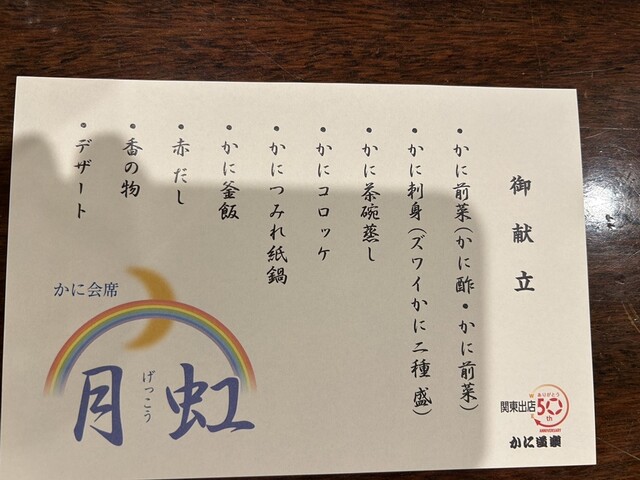 御献立
・かに前菜(かに酢・かに前菜)
・かに刺身(ズワイかに二種盛)
・かに茶碗蒸し
・かにコロッケ
・かにつみれ紙鍋
・かに釜飯
・赤だし
・香の物
・デザート
かに会席
月虹
げっこう
ありがとう
関東出店50th
ANNIVERSARY
かに道楽